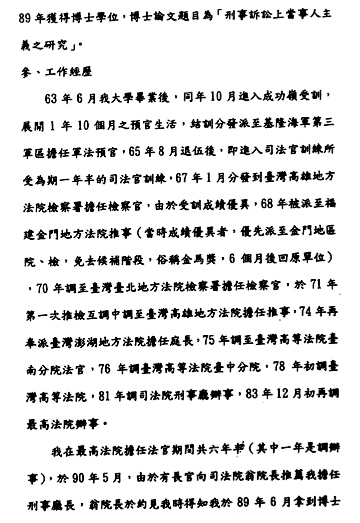 89 年獲得博士學位，博士論文題目為「刑事訴訟上當事人主
義之研究」。
參、工作經歷
63 年 6 月我大學畢業後，同年 10 月進入成功嶺受訓，
展開 1 年 10 個月之預官生活，結訓分發派至基隆海軍第三
軍區擔任軍法預官，65 年 8 月退伍後，即進入司法官訓練所
受為期一年半的司法官訓練，67 年 1 月分發到臺灣高雄地方
法院檢察署擔任檢察官，由於受訓成績優異，68 年被派至福
建金門地方法院推事（當時成績優異者，優先派至金門地區
院、檢，免去候補階段，俗稱金馬獎，6 個月後回原單位）
，70 年調至臺灣臺北地方法院檢察署擔任檢察官，於 71 年
第一次推檢互調中調至臺灣高雄地方法院擔任推事，74 年再
奉派臺灣澎湖地方法院擔任庭長，75 年調至臺灣高等法院臺
南分院法官，76 年調臺灣高等法院臺中分院，78 年初調臺
灣高等法院，81 年調司法院刑事廳辦事，83 年 12 月初再調
最高法院辦事。
我在最高法院擔任法官期間共六年半（其中一年是調辦
事），於 90 年 5 月，由於有長官向司法院翁院長推薦我擔任
刑事廳長，翁院長於約見我時得知我於 89 年 6 月拿到博士